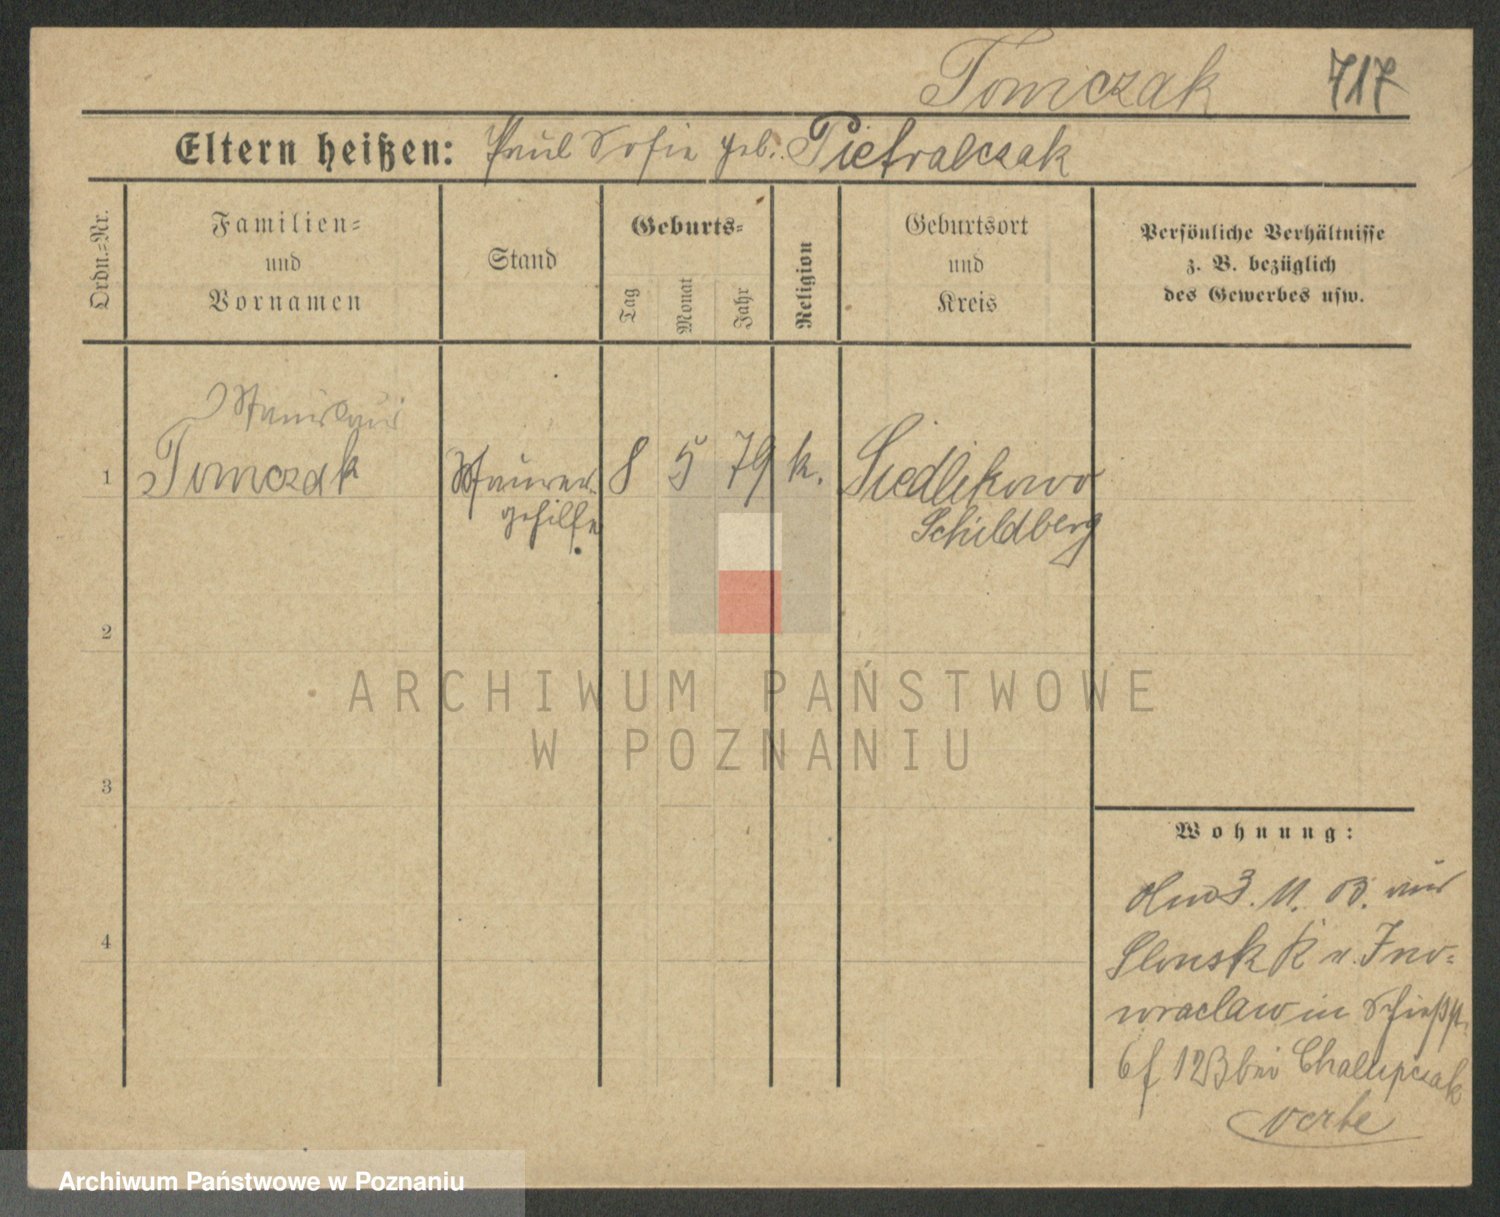 Tomczak 717
Eltern heißen: Paul Sofie geb. Pietralczak
Ordn.=Nr.
Familien=
und
Vornamen
Stand
Geburts=
Tag
Monat
Jahr
Religion
Geburtsort
und
Kreis
Persönliche Verhältnisse
z. B. bezüglich
des Gewerbes usw.
Stanislaus
1 Tomczak Maurer- 8 5 79 k. Siedlikowo
gehilfe Schildberg
2
3
4
Wohnung:
3. 11. 03. aus
Slonsk K v. Ino=
wraclaw in Schießst.
6 f 12B bei Chalupczak
ARCHIWUM PAŃSTWOWE
W POZNANIU
Archiwum Państwowe w Poznaniu